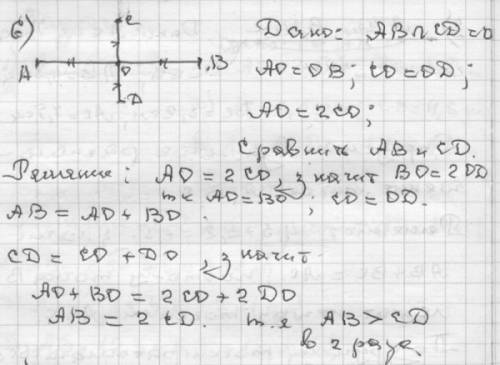 б)
C
A
O
B
D
Дано: AB ∩ CD = O
AO = OB; CO = OD;
AO = 2CO;
Сравнить AB и CD.
Решение: AO = 2CO, значит BO = 2OD
т.к AO = BO; CO = OD.
AB = AO + BO.
CD = CO + DO, значит
AO + BO = 2CO + 2DO
AB = 2CD. т.е AB > CD
в 2 раза